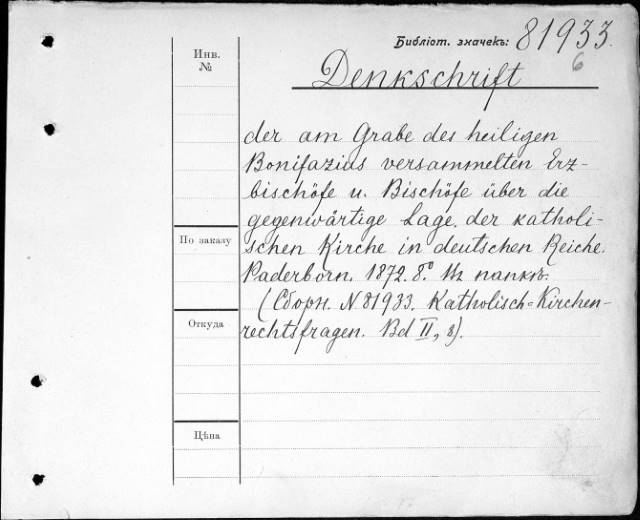 Библіот. значекъ: 81933.
6
Инв.
№
Denkschrift
der am Grabe des heiligen
Bonifazius versammelten Erz-
bischöfe u. Bischöfe über die
gegenwärtige Lage der katholi-
По заказу
schen Kirche in deutschen Reiche.
Paderborn. 1872. 8.º папкѣ.
(Сборн. N 81933. Katholisch=Kirchen-
Откуда
rechtsfragen. Bd II, 8).
Цѣна